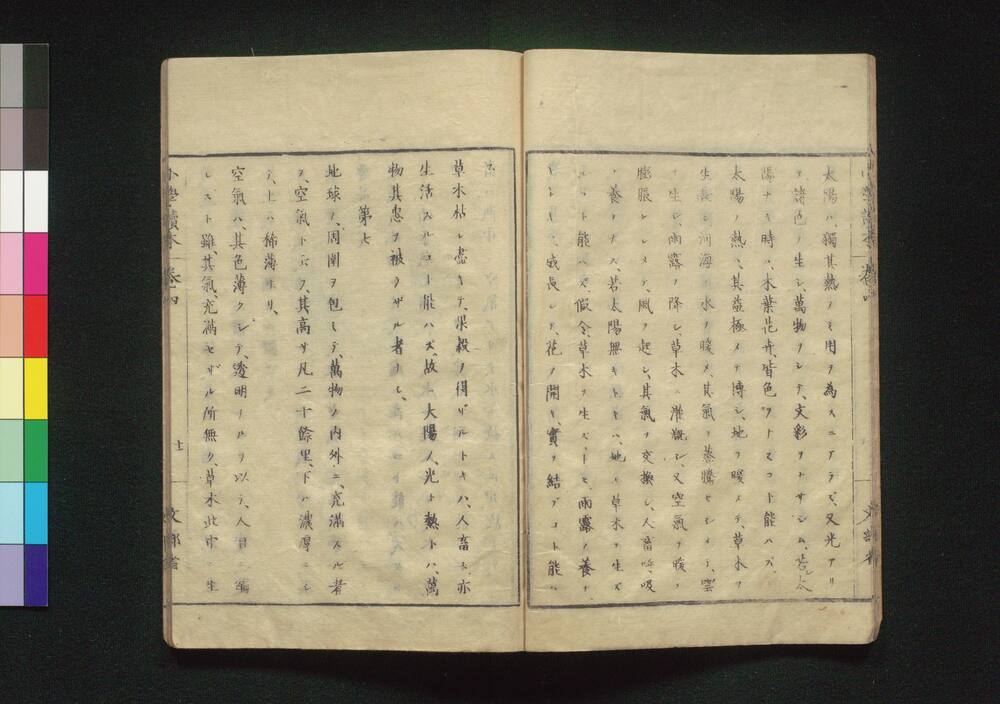 太陽ハ、獨其熱ノミ用ヲ為スニアラズ、又光アリ
テ、諸色ヲ生シ、萬物ヲシテ、文彩ヲナサシム、若太
陽ナキ時ハ、木葉花卉、皆色ヲナスコト能ハズ、
太陽ノ熱ハ、其益極メテ博シ、地ヲ暖メテ、草木ヲ
生長シ、河海ノ水ヲ暖メ、其氣ヲ蒸騰セシメテ、雲
ヲ生シ、雨露ヲ降シ、草木ヲ灌漑シ、又空氣ヲ暖メ
膨脹シシメテ、風ヲ起シ、其氣ヲ交換シ、人畜呼吸
ノ養ヲナス、若太陽無キトキハ、地ニ草木ヲ生ズ
ルコト能ハズ、假令、草木ヲ生ズトモ、雨露ノ養ヲ
成長シテ、花ヲ開キ、實ヲ結ブコト能ハ
草木枯レ盡キテ、果穀ヲ得ザルトキハ、人畜モ、亦
生活スルコト能ハズ、故ニ大陽ノ光ト熱トハ、萬
物其惠ヲ被ラザル者ナシ、
第七
地球ノ、周圍ヲ包ミテ、萬物ノ内外ニ、充滿スル者
ヲ、空氣ト云フ、其高サ凡二十餘里、下ハ濃厚ニシ
テ、上ハ稀薄ナリ、
空氣ハ、其色薄クシテ、透明ナルヲ以テ、人目ニ
レズト雖、其氣、充滿セザル所無ク、草木此中ニ生
小學讀本 卷四
十一
文部省
小學讀本 卷四
文部省